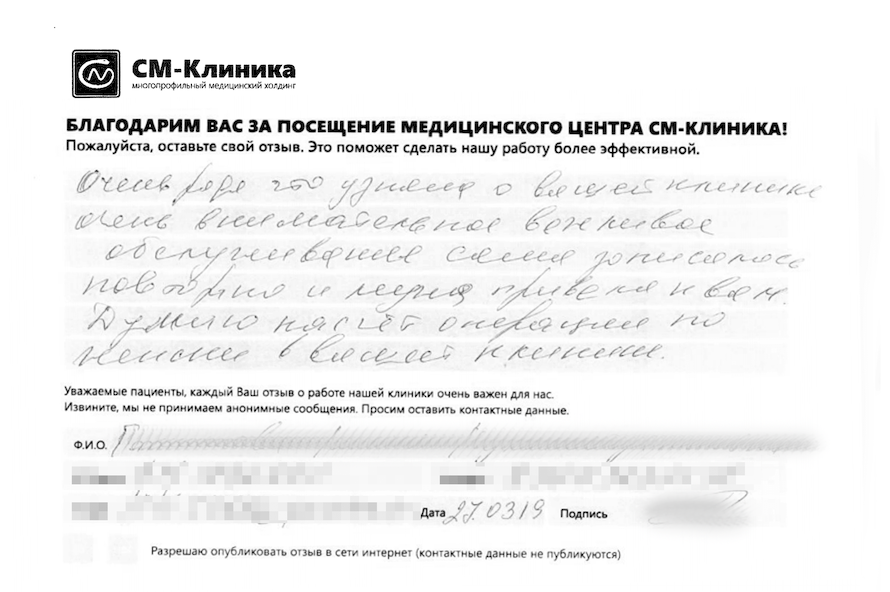 СМ-Клиника
многопрофильный медицинский холдинг
БЛАГОДАРИМ ВАС ЗА ПОСЕЩЕНИЕ МЕДИЦИНСКОГО ЦЕНТРА СМ-КЛИНИКА!
Пожалуйста, оставьте свой отзыв. Это поможет сделать нашу работу более эффективной.
Очень рада что узнала о вашей клинике
очень внимательное вежливое
обслуживание сама записалась
повторно и мужа привела к вам.
Думаю насчёт операции по
в вашей клинике.
Уважаемые пациенты, каждый Ваш отзыв о работе нашей клиники очень важен для нас.
Извините, мы не принимаем анонимные сообщения. Просим оставить контактные данные.
Ф.И.О.
Дата 27.0319 Подпись
Разрешаю опубликовать отзыв в сети интернет (контактные данные не публикуются)